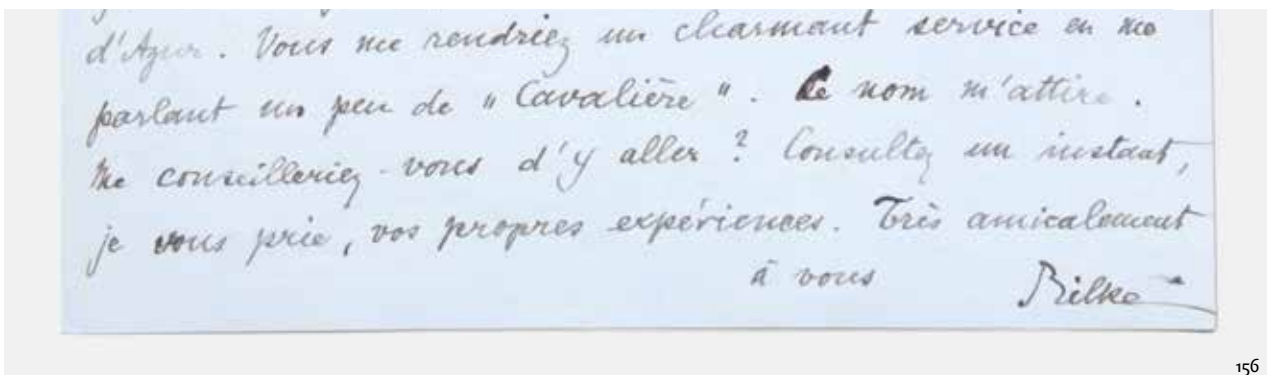 d'Azur. Vous me rendriez un charmant service en me
parlant un peu de „Cavalière". Ce nom m'attire.
Me conseilleriez-vous d'y aller? Consultez un instant,
je vous prie, vos propres expériences. Très amicalement
à vous Rilke
156